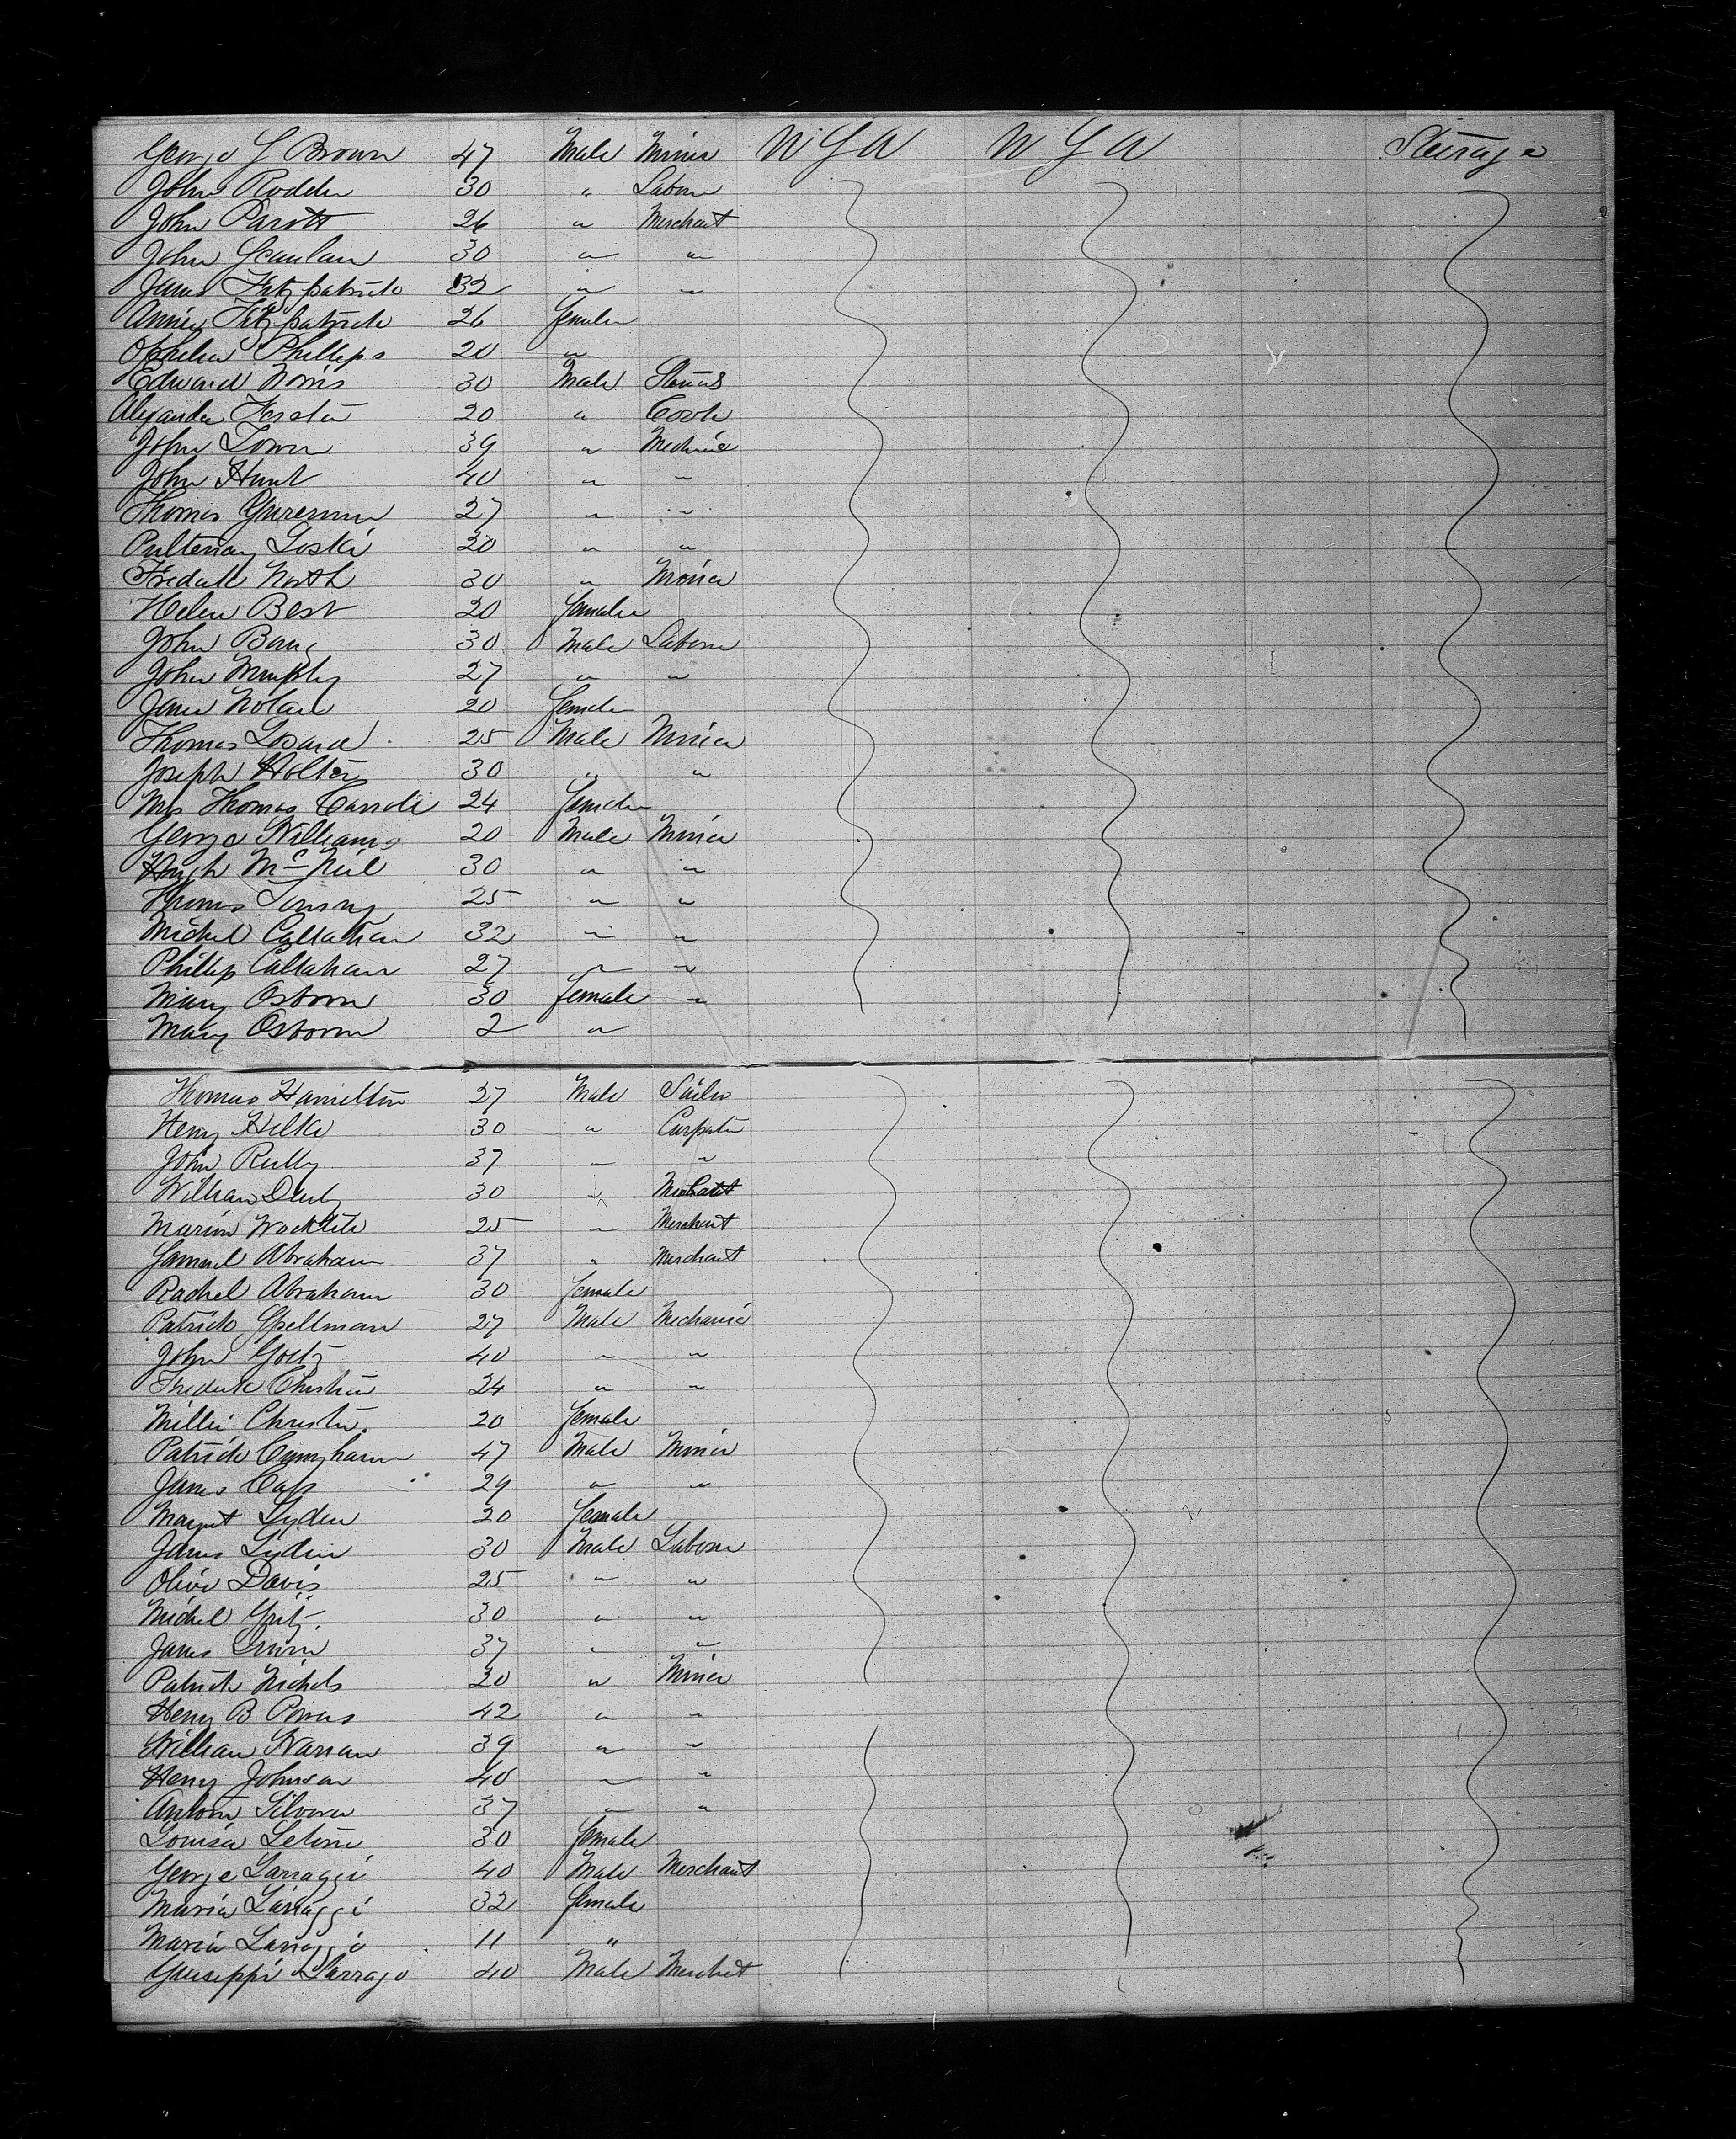 George G Brown 47 Male Miner U S A U S A Steerage
John Rodden 30 " Labore
John Parott 26 " Merchant
John Scanlan 30 " "
James Fitzpatrick 32 " "
Annie Fitzpatrick 26 Female
Ophelia Phillips 20 "
Edward Norris 30 Male
Alexander 20 " Cook
John 39 " Mechanic
John Hunt 40 " "
Thomas 27 " "
Pultenay Loski 20 " "
Fredak North 30 " Miner
Helen Best 20 Female
John 30 Male Labore
John Murphy 27 " "
Jane Nolan 20 Female
Thomas 25 Male Miner
Joseph 30 " "
Mrs Thomas Carroll 24 Female
George Williams 20 Male Miner
Hugh McNeil 30 " "
Thomas 25 " "
Michel Callahan 32 " "
Phillip Callahan 27 " "
Mary Osborn 30 Female "
Mary Osborn 2 "
Thomas Hamilton 27 Male Sailor
Henry 30 " Carpenter
John Reilly 37 " "
William 30 " Merchant
Marion 25 " Merchant
Samuel Abraham 37 " Merchant
Rachel Abraham 30 Female
Patrick Spellman 27 Male Mechanic
John Goetz 40 " "
Frederick Christie 24 " "
Millie Christie 20 Female
Patrick 47 Male Miner
James 29 " "
Margret Lyden 20 Female
James Lyden 30 Male Labore
Olive Davis 25 " "
Michel 30 " "
James 37 " "
Patrick Nichols 20 " Miner
Henry B 42 " "
William Warran 39 " "
Henry Johnson 40 " "
Antoin Silvera 37 " "
Louisa 30 Female
George Larraggi 40 Male Merchant
Maria Larraggi 32 Female
Maria Larraggi 11 "
Guiseppi Larrago 40 Male Merchant